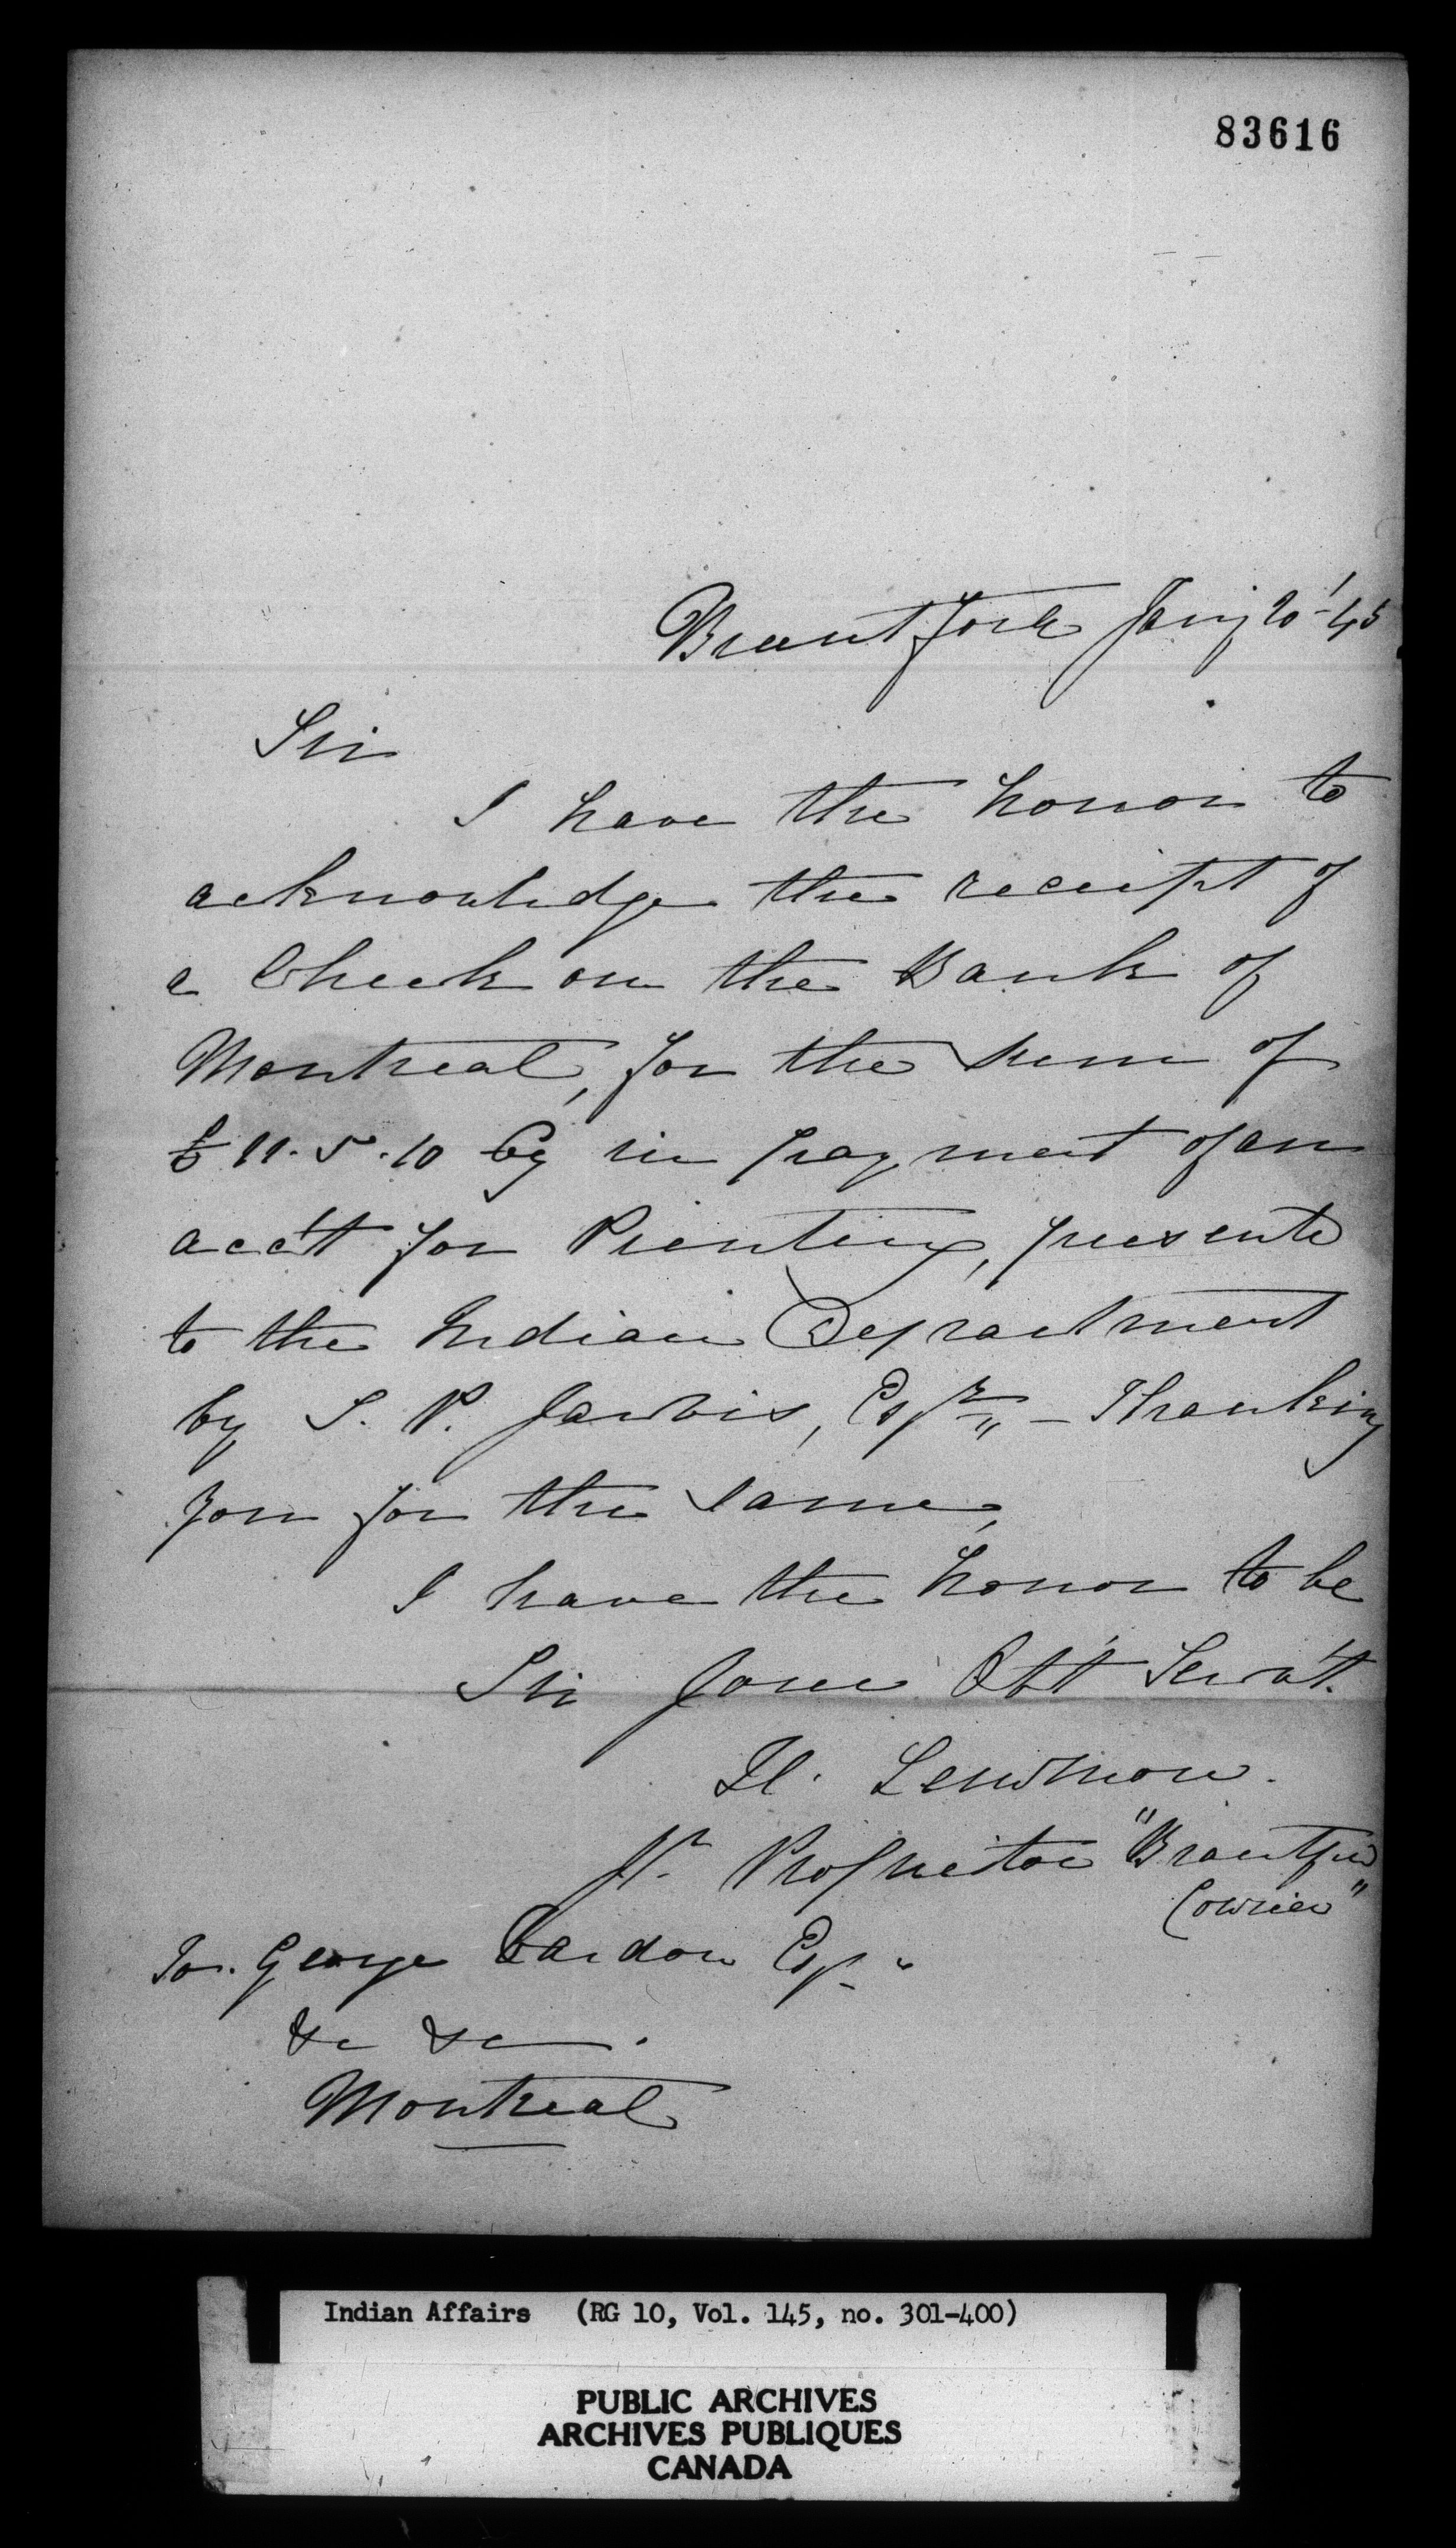 83616
Brantford Jany 20 '45
Sir
I have the honor to
acknowledge the receipt of
a Check on the Bank of
Montreal, for the sum of
£11.5.10 Cy in payment of an
acc't for Printing, presented
to the Indian Department
by S. P. Jarvis, Esqr — Thanking
you for the same,
I have the honor to be
Sir Your Obt Serv't.
H. Lemmon.
Jr. Proprietor "Brantford
Courier"
To. George Vardon Esqr
&c &c.
Montreal
Indian Affairs (RG 10, Vol. 145, no. 301-400)
PUBLIC ARCHIVES
ARCHIVES PUBLIQUES
CANADA